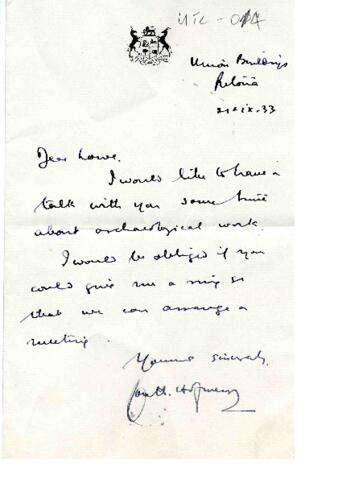 Union Buildings
Pretoria
21.ix.33
Dear Lowe.
I would like to have a
talk with you some time
about archaeological work.
I would be obliged if you
could give me a ring so
that we can arrange a
meeting.
Yours sincerely
Hofmeyr